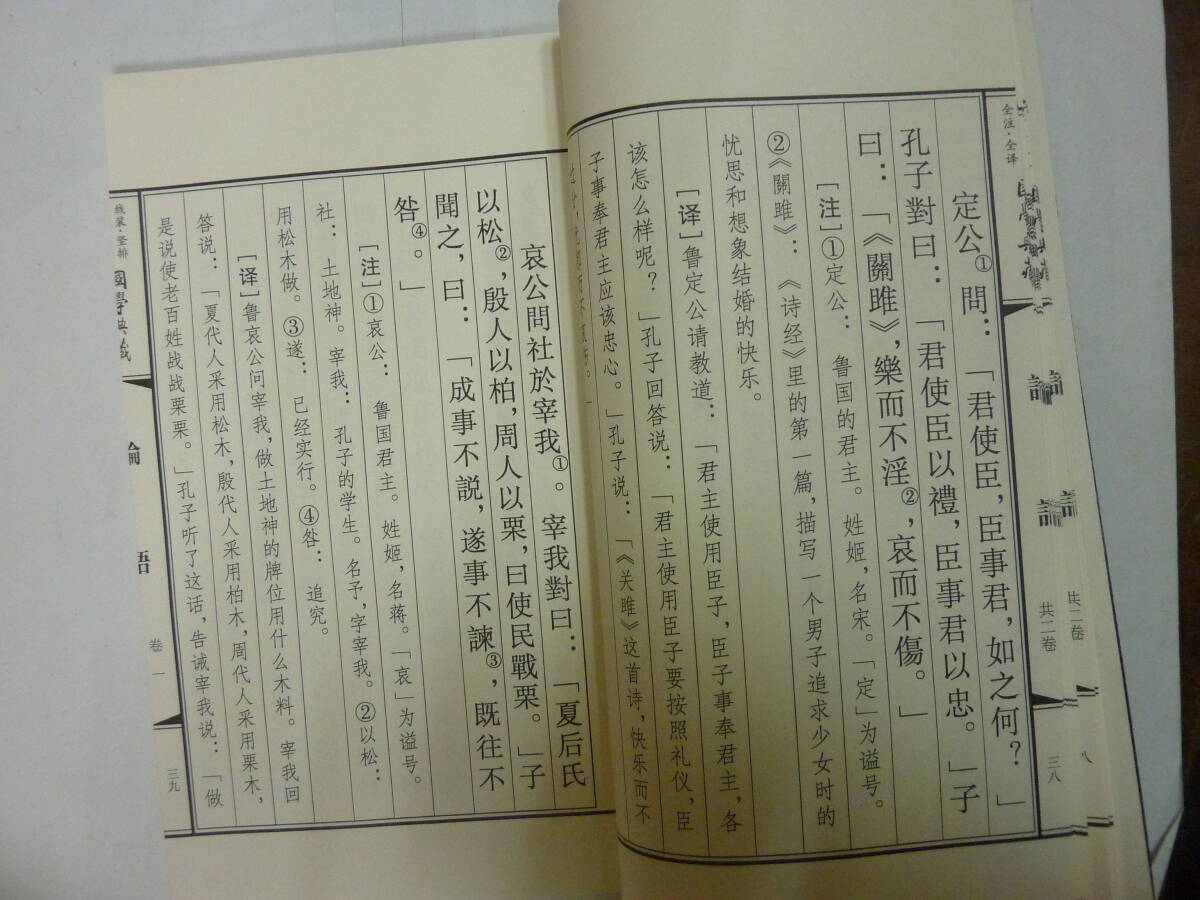 全注·全译
定公①問：「君使臣，臣事君，如之何？」
孔子對曰：「君使臣以禮，臣事君以忠。」子
曰：「《關雎》，樂而不淫②，哀而不傷。」
［注］①定公：鲁国的君主。姓姬，名宋。「定」为谥号。
②《關雎》：《诗经》里的第一篇，描写一个男子追求少女时的
忧思和想象结婚的快乐。
［译］鲁定公请教道：「君主使用臣子，臣子事奉君主，各
该怎么样呢？」孔子回答说：「君主使用臣子要按照礼仪，臣
子事奉君主应该忠心。」孔子说：「《关雎》这首诗，快乐而不
共二卷
三八
共二卷
八
哀公問社於宰我①。宰我對曰：「夏后氏
以松②，殷人以柏，周人以栗，曰使民戰栗。」子
聞之，曰：「成事不説，遂事不諫③，既往不
咎④。」
［注］①哀公：鲁国君主。姓姬，名蒋。「哀」为谥号。
社：土地神。宰我：孔子的学生。名予，字宰我。②以松：
用松木做。③遂：已经实行。④咎：追究。
［译］鲁哀公问宰我，做土地神的牌位用什么木料。宰我回
答说：「夏代人采用松木，殷代人采用柏木，周代人采用栗木，
是说使老百姓战战栗栗。」孔子听了这话，告诫宰我说：「做
线装·竖排
國學典藏
論
語
卷一
三九